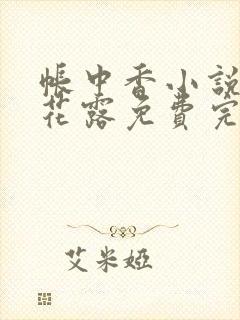 帳中香小說
花露免費完
艾米婭